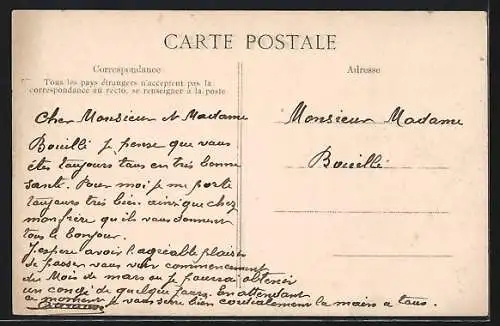 CARTE POSTALE
Correspondance
Tous les pays étrangers n'acceptent pas la
correspondance au recto, se renseigner à la poste
Cher Monsieur et Madame
Bouilli je pense que vous
êtes toujours tous en très bonne
santé. Pour moi je me porte
toujours très bien ainsi que chez
mon frère qu'ils vous donnent
tous le bonjour.
J'espère avoir l'agréable plaisir
de passer vous voir commencement
du Mois de mars où je pourrai obtenir
un congé de quelques jours. En attendant
ce moment je vous serre bien cordialement la main a tous.
Adresse
Monsieur Madame
Bouilli